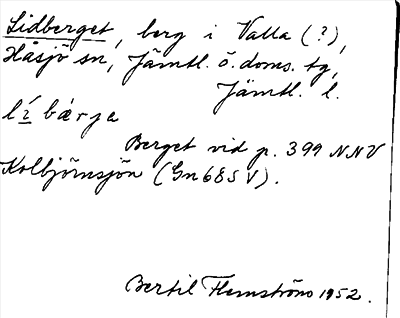 Lidberget, berg i Valla (?),
Håsjö sn, Jämtl. ö. doms. tg,
Jämtl. l.
lí bárja
Berget vid p. 399 NNV
Kolbjörnsjön (Gn 68SV).
Bertil Flemström 1952.